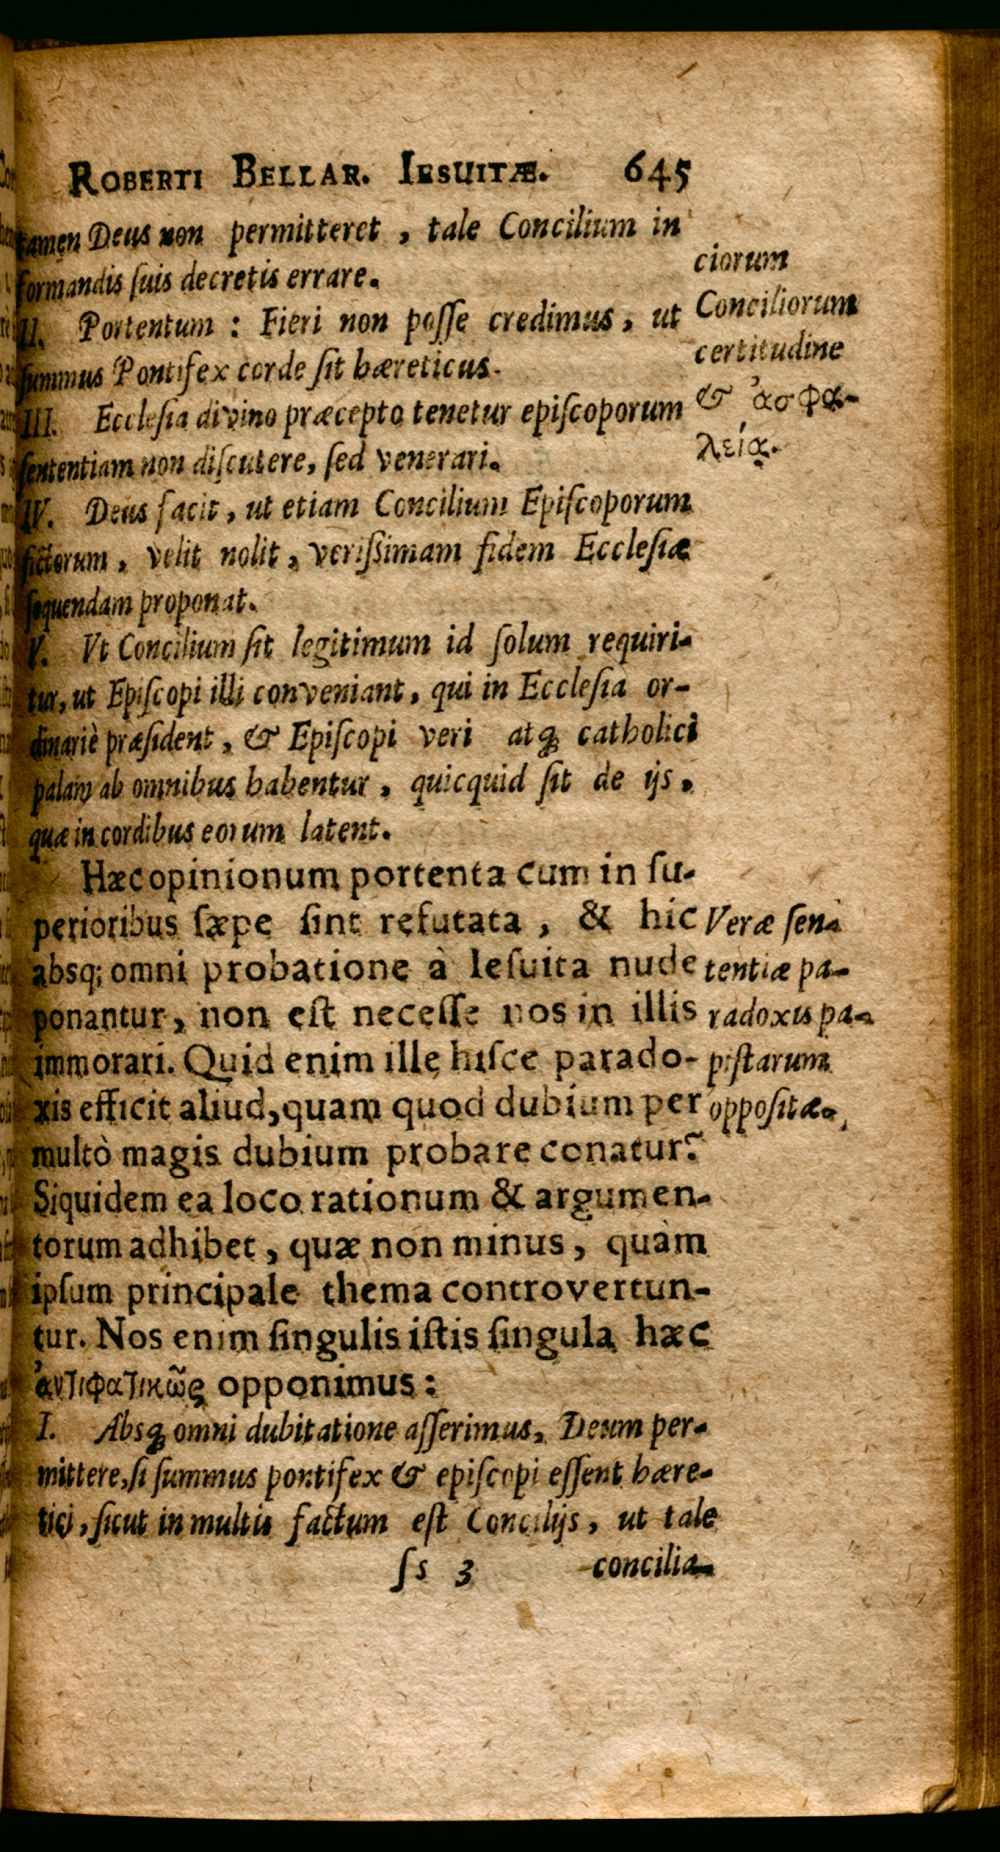 ROBERTI BELLAR. IESUITÆ. 645
tamen Deus non permitteret, tale Concilium in
formandis suis decretis errare.
II. Portentum: Fieri non posse credimus, ut
summus Pontifex corde sit hæreticus.
III. Ecclesia divino præcepto tenetur episcoporum
sententiam non discutere, sed venerari.
IV. Deus facit, ut etiam Concilium Episcoporum
fictorum, velit nolit, verissimam fidem Ecclesiæ
sequendam proponat.
V. Vt Concilium sit legitimum id solum requiri-
tur, ut Episcopi illi conveniant, qui in Ecclesia or-
dinariè præsident, & Episcopi veri atq; catholici
palam ab omnibus habentur, quicquid sit de ijs,
quæ in cordibus eorum latent.
ciorum
Conciliorum
certitudine
& ἀσφα-
λείᾳ.
Hæc opinionum portenta cum in su-
perioribus sæpe sint refutata, & hic
absq; omni probatione à Iesuita nude
ponantur, non est necesse nos in illis
immorari. Quid enim ille hisce parado-
xis efficit aliud, quam quod dubium per
multò magis dubium probare conatur?
Siquidem ea loco rationum & argumen-
torum adhibet, quæ non minus, quàm
ipsum principale thema controvertun-
tur. Nos enim singulis istis singula hæc
ἀντιφατικῶς opponimus:
Veræ sen-
tentiæ pa-
radoxis pa-
pistarum
oppositæ.
I. Absq; omni dubitatione asserimus, Deum per-
mittere, si summus pontifex & episcopi essent hære-
tici, sicut in multis factum est Concilijs, ut tale
Ss 3 concilia-